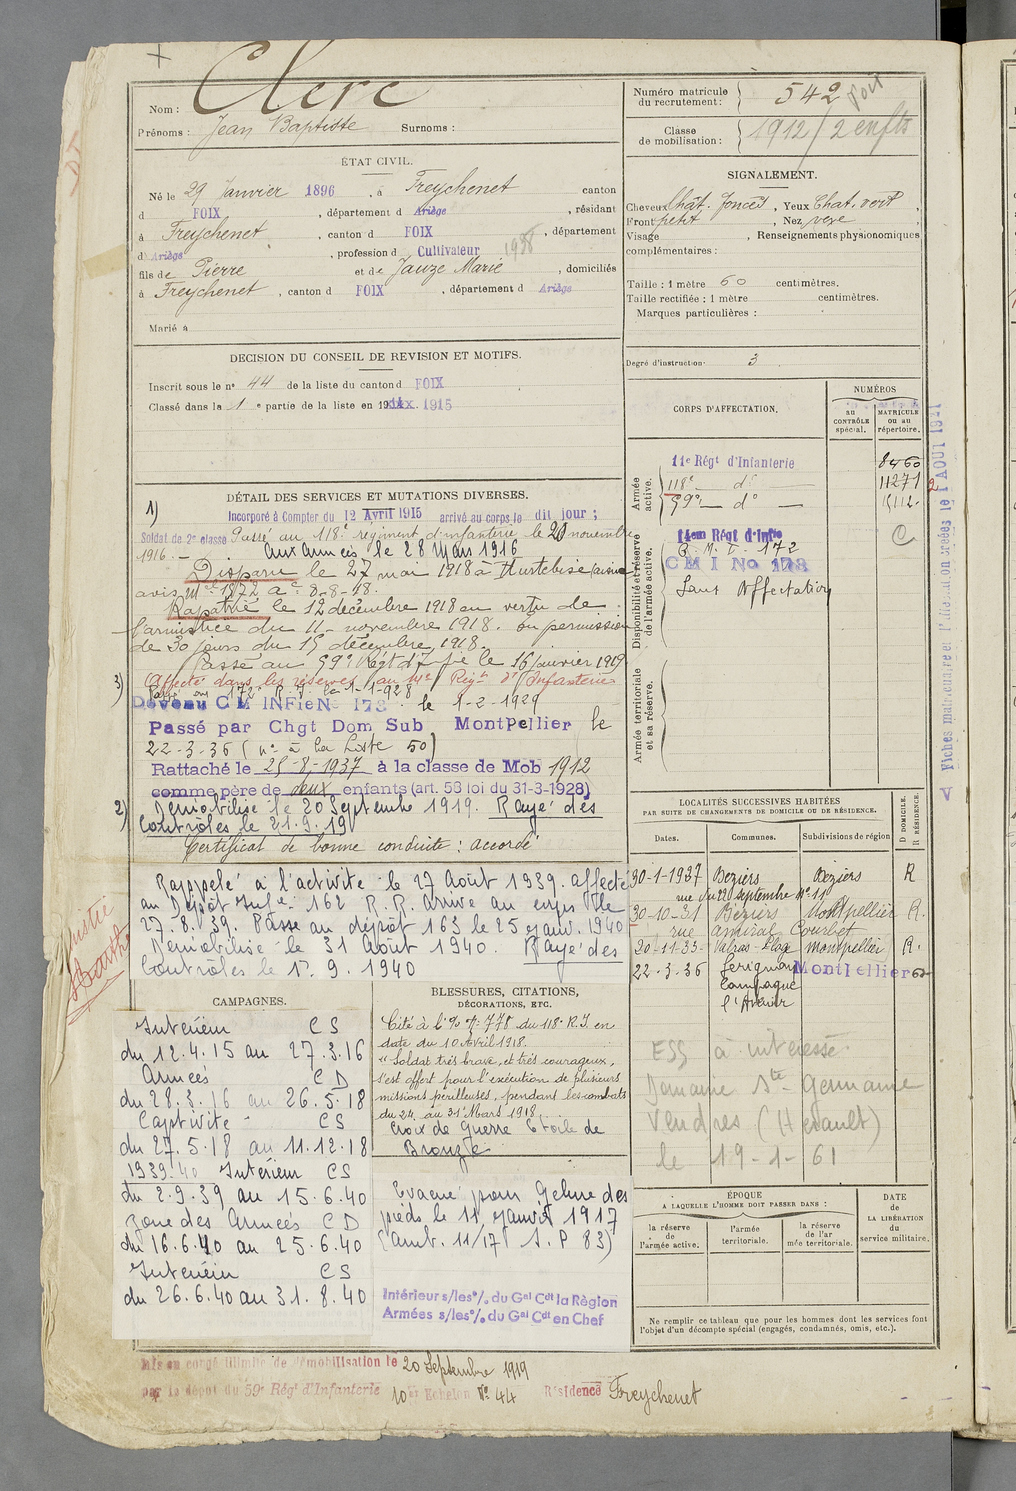 Nom : Clerc
Prénoms : Jean Baptiste Surnoms :
ÉTAT CIVIL.
Né le 29 Janvier 1896, à Freychenet canton
d FOIX, département d Ariège, résidant
à Freychenet, canton d FOIX, département
d' Ariège, profession d Cultivateur
fils de Pierre et de Jauze Marie, domiciliés
à Freychenet, canton d FOIX, département d Ariège
Marié à
DECISION DU CONSEIL DE REVISION ET MOTIFS.
Inscrit sous le n° 44 de la liste du canton d FOIX
Classé dans la 1 e partie de la liste en 19 1915
Numéro matricule du recrutement : 542
Classe de mobilisation : 1912 / 2 enfts
SIGNALEMENT.
Cheveux Chât. foncés, Yeux Chat. vert,
Front petit, Nez vexe
Visage , Renseignements physionomiques
complémentaires :
Taille : 1 mètre 60 centimètres.
Taille rectifiée : 1 mètre centimètres.
Marques particulières :
Degré d'instruction : 3
CORPS D'AFFECTATION.
NUMÉROS
au CONTRÔLE spécial.
MATRICULE ou au répertoire.
Armée active.
11e Régt d'Infanterie 8460
118e d° 11271
59e d° 15112
Disponibilité et réserve de l'armée active.
14em Régt d'Infie
R. M. I. 172
C M I No 173
Sans Affectation
Armée territoriale et sa réserve.
Fiches matricule et d'affectation créées le 1 AOUT 1941
DÉTAIL DES SERVICES ET MUTATIONS DIVERSES.
1) Incorporé à Compter du 12 Avril 1915 arrivé au corps le dit jour ;
Soldat de 2e classe Passé au 118e régiment d'infanterie le 20 novembre
1916. — Aux Armées le 28 Mars 1916
Disparu le 27 mai 1918 à Hurtebise (aisne
avis Mel 1872 ac 8-8-18.
Rapatrié le 12 décembre 1918 en vertu de
l'armistice du 11 novembre 1918. En permission
de 30 jours du 15 décembre 1918.
Passé au 59e Régt d'Infie le 16 Janvier 1919
3) Affecté dans les réserves au 14e Régt d'Infanterie
Passé au 172e R. I. le 1-1-928
Devenu C M INFie No 173 le 1-2-1929
Passé par Chgt Dom Sub Montpellier le
22-3-36 (n° à la Liste 50)
Rattaché le 25-8-1937 à la classe de Mob 1912
comme père de deux enfants (art. 58 loi du 31-3-1928)
2) Démobilisé le 20 Septembre 1919. Rayé des
Contrôles le 21.9.19
Certificat de bonne conduite : accordé
Rappelé à l'activité le 27 Août 1939. affecté
au Dépôt Infie 162 R. R. Arrivé au corps le
27.8.39. Passé au dépôt 163 le 25 janv. 1940
Démobilisé le 31 Août 1940. Rayé des
Contrôles le 1.9.1940
LOCALITÉS SUCCESSIVES HABITÉES
PAR SUITE DE CHANGEMENTS DE DOMICILE OU DE RÉSIDENCE.
Dates. Communes. Subdivisions de région D DOMICILE. R RÉSIDENCE.
30-1-1937 Beziers Beziers R
rue du 22 septembre N° 11
30-10-31 Béziers Montpellier R.
rue amiral Courbet
20-11-33 Valras-Plage Montpellier R.
22-3-36 Serignan Montpellier
Campagne
l'Avenir
ESS à intéressé
Domaine Ste Germaine
Vendres (Herault)
le 19-1-61
CAMPAGNES.
Intérieur C S
du 12.4.15 au 27.3.16
Armées C D
du 28.3.16 au 26.5.18
Captivité CS
du 27.5.18 au 11.12.18
1939.40 Intérieur CS
du 2.9.39 au 15.6.40
Zone des Armées C D
du 16.6.40 au 25.6.40
Intérieur CS
du 26.6.40 au 31.8.40
BLESSURES, CITATIONS,
DÉCORATIONS, ETC.
Cité à l'o/ N° 778 du 118e R.I. en
date du 10 Avril 1918.
"Soldat très brave, et très courageux,
s'est offert pour l'exécution de plusieurs
missions périlleuses, pendant les combats
du 24 au 31 Mars 1918
Croix de Guerre Etoile de
Bronze
Evacué pour Gelure des
pieds le 11 janvier 1917
(amb. 11/17 S. P 83)
Intérieur s/les o/. du Gal Cdt la Région
Armées s/les o/. du Gal Cdt en Chef
ÉPOQUE
A LAQUELLE L'HOMME DOIT PASSER DANS :
la réserve de l'armée active.
l'armée territoriale.
la réserve de l'ar mée territoriale.
DATE DE LA LIBÉRATION du service militaire.
Ne remplir ce tableau que pour les hommes dont les services font
l'objet d'un décompte spécial (engagés, condamnés, omis, etc.).
Mis en congé illimité de démobilisation le 20 Septembre 1919
par le dépôt du 59e Régt d'Infanterie 10er Echelon N° 44 Résidence Freychenet